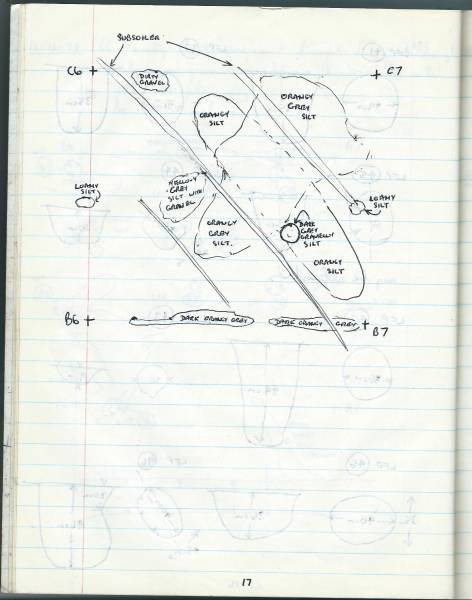 SUBSOILER
C6 +
+ C7
DIRTY
GRAVEL
ORANGY
SILT
ORANGY
GREY
SILT
YELLOWY
GREY
SILT WITH
GRAVEL
LOAMY
SILT
LOAMY
SILT
ORANGY
GREY
SILT
DARK
GREY
GRAVELLY
SILT
ORANGY
SILT
B6 +
DARK ORANGY GREY
DARK ORANGY GREY
+
B7
17